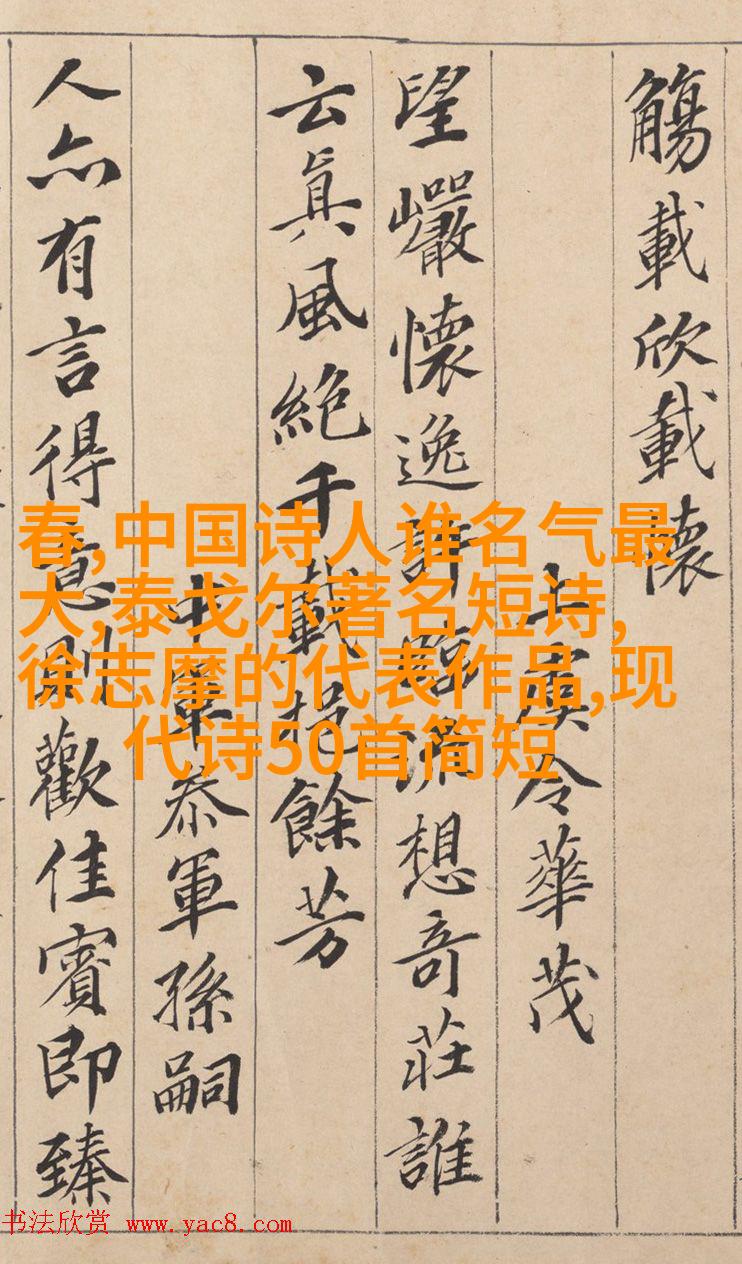 觴載欣載懷
上虞令華茂
望巖懷逸許臨流想奇莊誰
云真風絕千載挹餘芳
中軍叅軍孫嗣
人亦有言得意則歡佳賓即臻
春,中国诗人谁名气最
大,泰戈尔著名短诗,
徐志摩的代表作品,现
代诗50首简短
书法欣赏 www.yac8.com